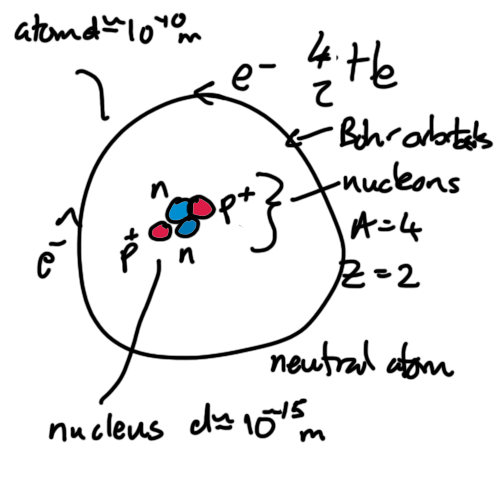 atom d≈10⁻¹⁰ m
e⁻
⁴₂He
Bohr orbitals
nucleons
n
p⁺
A=4
e⁻
p⁺
n
Z=2
neutral atom
nucleus d≈10⁻¹⁵ m